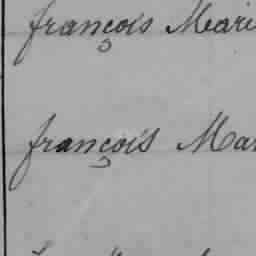 françois Mari
françois Mar